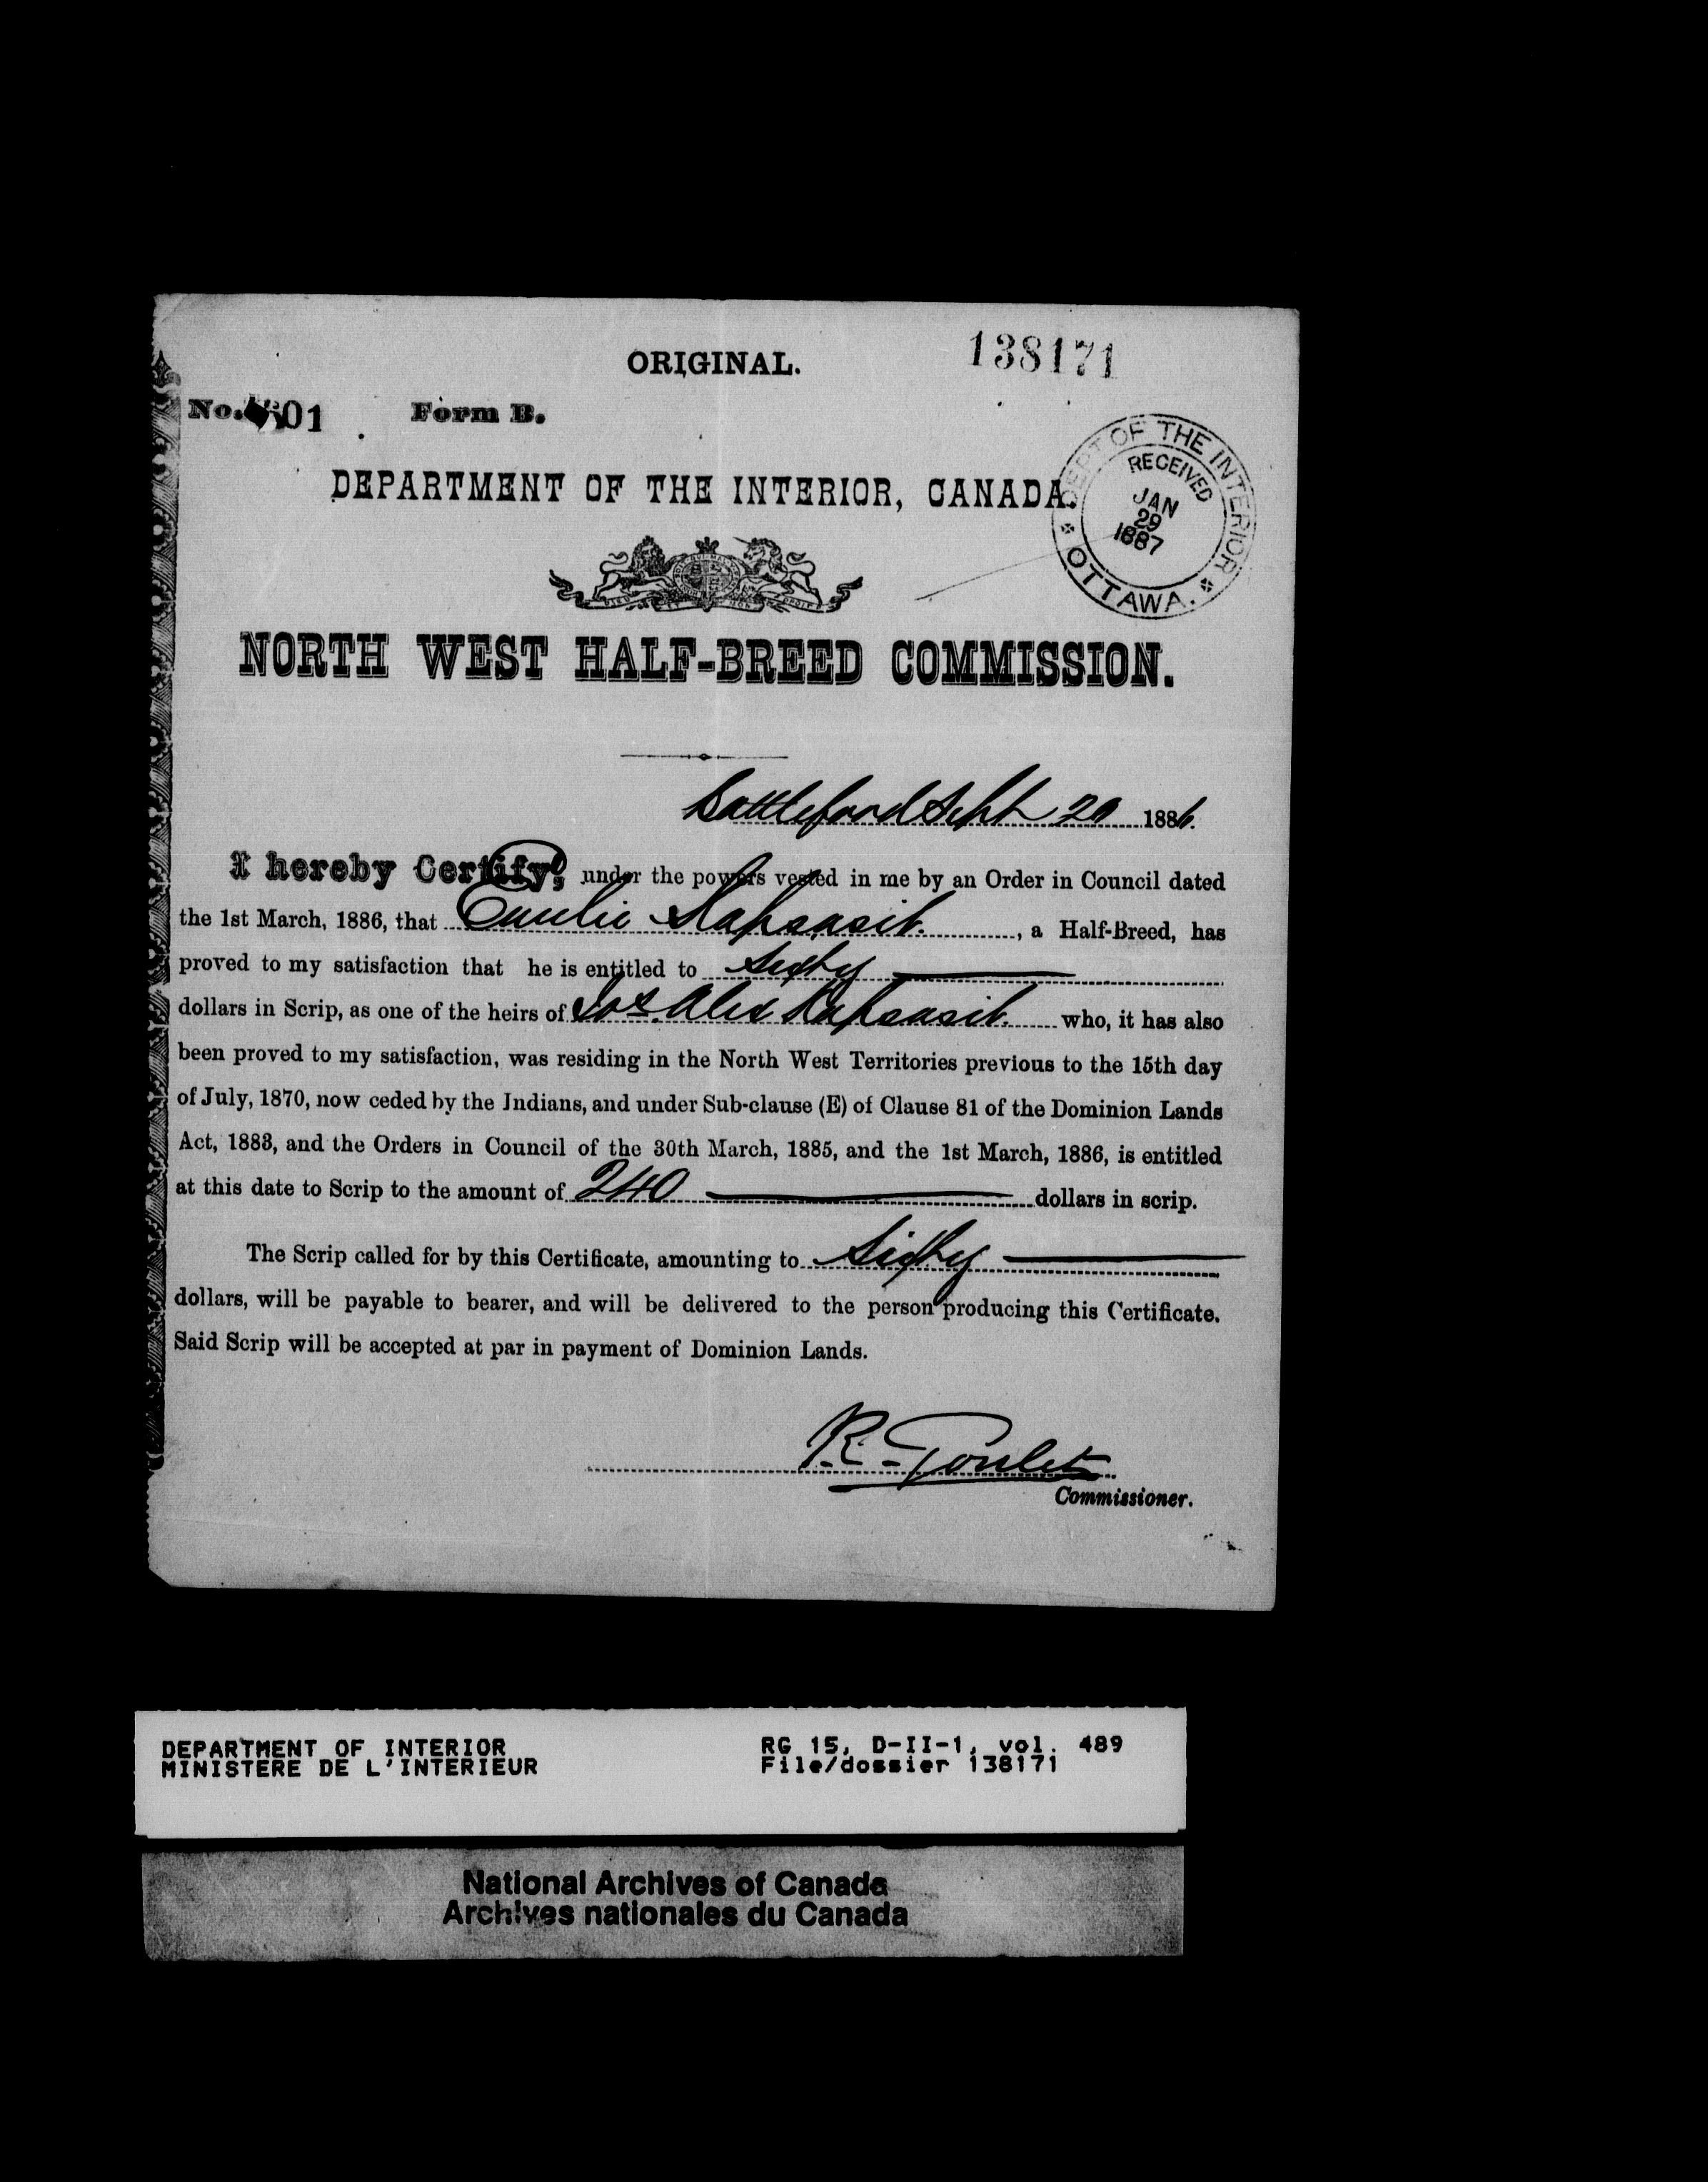 ORIGINAL.
138171
No. 01 Form B.
DEPT OF THE INTERIOR
RECEIVED
JAN
29
1887
OTTAWA.
DEPARTMENT OF THE INTERIOR, CANADA.
NORTH WEST HALF-BREED COMMISSION.
Battleford Sept 20 1886.
I hereby Certify, under the powers vested in me by an Order in Council dated
the 1st March, 1886, that Emilie , a Half-Breed, has
proved to my satisfaction that he is entitled to Sixty
dollars in Scrip, as one of the heirs of Jos. Alex who, it has also
been proved to my satisfaction, was residing in the North West Territories previous to the 15th day
of July, 1870, now ceded by the Indians, and under Sub-clause (E) of Clause 81 of the Dominion Lands
Act, 1883, and the Orders in Council of the 30th March, 1885, and the 1st March, 1886, is entitled
at this date to Scrip to the amount of 240 dollars in scrip.
The Scrip called for by this Certificate, amounting to Sixty
dollars, will be payable to bearer, and will be delivered to the person producing this Certificate.
Said Scrip will be accepted at par in payment of Dominion Lands.
R. Goulet
Commissioner.
DEPARTMENT OF INTERIOR
MINISTERE DE L'INTERIEUR
RG 15, D-II-1, vol. 489
File/dossier 138171
National Archives of Canada
Archives nationales du Canada